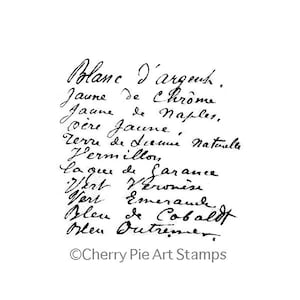 Blanc d'argent.
Jaune de Chrôme
Jaune de Naples.
Ocre Jaune.
Terre de Sienne Naturelle
Vermillon
Laque de Garance
Vert Véronèse
Vert Emeraude
Bleu de Cobaldt
Bleu Outremer.
©Cherry Pie Art Stamps